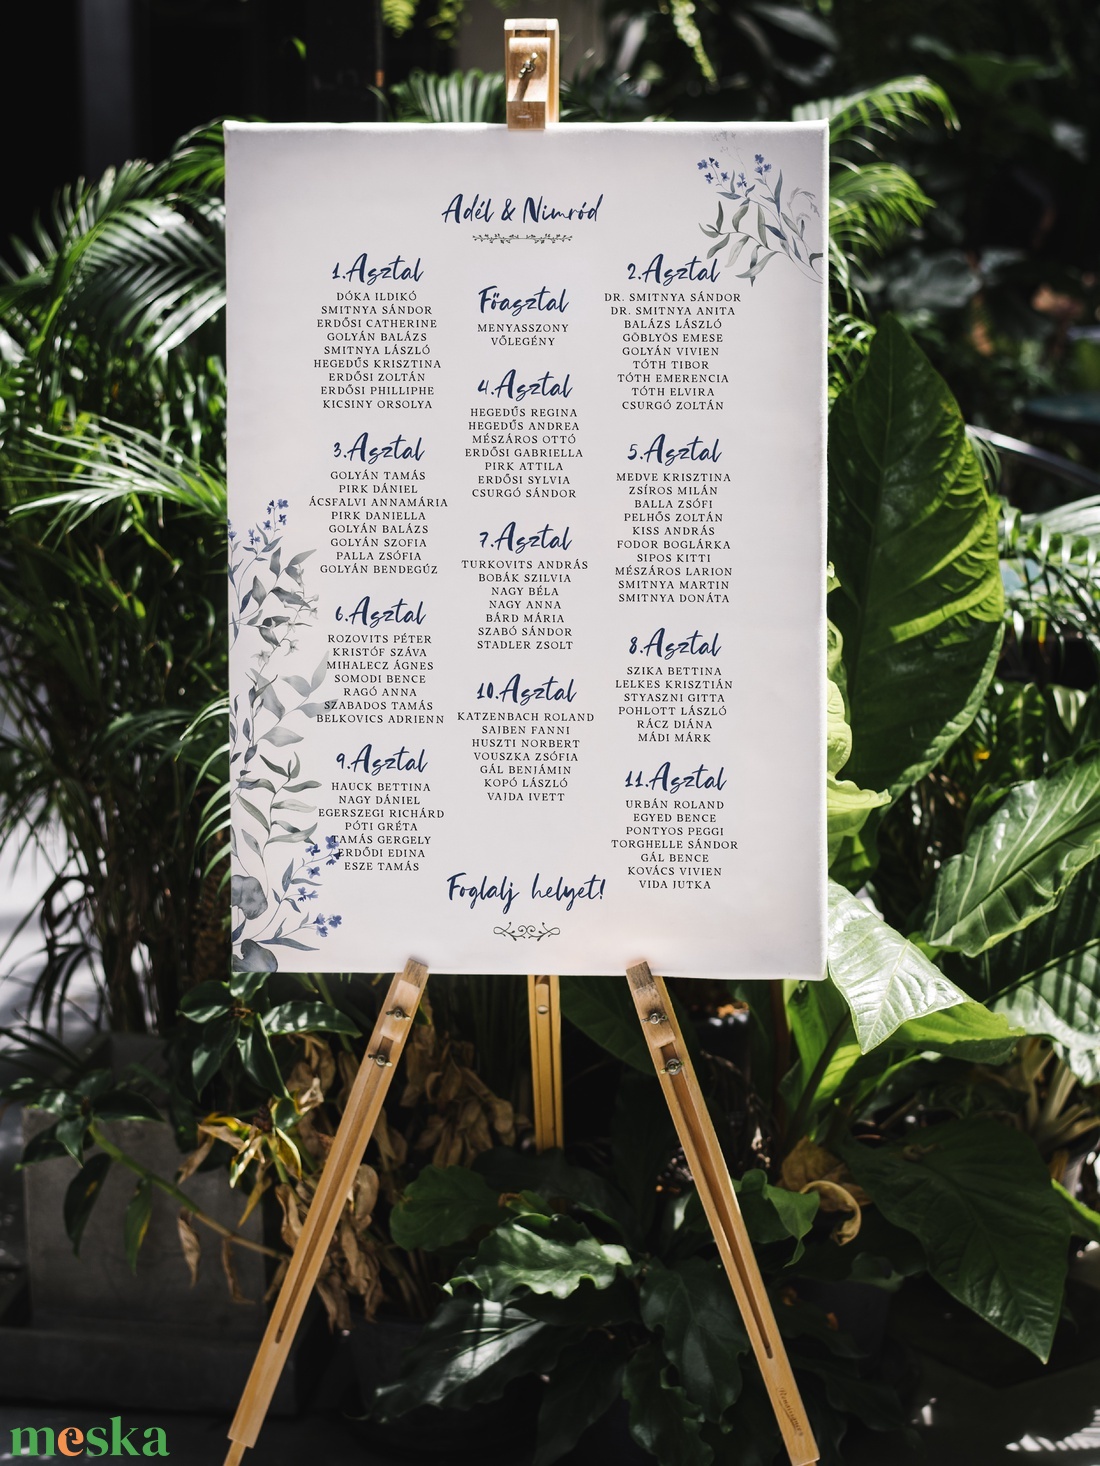 Adél & Nimród
1.Asztal
DÓKA ILDIKÓ
SMITNYA SÁNDOR
ERDŐSI CATHERINE
GOLYÁN BALÁZS
SMITNYA LÁSZLÓ
HEGEDŰS KRISZTINA
ERDŐSI ZOLTÁN
ERDŐSI PHILLIPHE
KICSINY ORSOLYA
3.Asztal
GOLYÁN TAMÁS
PIRK DÁNIEL
ÁCSFALVI ANNAMÁRIA
PIRK DANIELLA
GOLYÁN BALÁZS
GOLYÁN SZOFIA
PALLA ZSÓFIA
GOLYÁN BENDEGÚZ
6.Asztal
ROZOVITS PÉTER
KRISTÓF SZÁVA
MIHALECZ ÁGNES
SOMODI BENCE
RAGÓ ANNA
SZABADOS TAMÁS
BELKOVICS ADRIENN
9.Asztal
HAUCK BETTINA
NAGY DÁNIEL
EGERSZEGI RICHÁRD
PÓTI GRÉTA
TAMÁS GERGELY
ERDŐDI EDINA
ESZE TAMÁS
Főasztal
MENYASSZONY
VŐLEGÉNY
4.Asztal
HEGEDŰS REGINA
HEGEDŰS ANDREA
MÉSZÁROS OTTÓ
ERDŐSI GABRIELLA
PIRK ATTILA
ERDŐSI SYLVIA
CSURGÓ SÁNDOR
7.Asztal
TURKOVITS ANDRÁS
BOBÁK SZILVIA
NAGY BÉLA
NAGY ANNA
BÁRD MÁRIA
SZABÓ SÁNDOR
STADLER ZSOLT
10.Asztal
KATZENBACH ROLAND
SAJBEN FANNI
HUSZTI NORBERT
VOUSZKA ZSÓFIA
GÁL BENJÁMIN
KOPÓ LÁSZLÓ
VAJDA IVETT
2.Asztal
DR. SMITNYA SÁNDOR
DR. SMITNYA ANITA
BALÁZS LÁSZLÓ
GÖBLYÖS EMESE
GOLYÁN VIVIEN
TÓTH TIBOR
TÓTH EMERENCIA
TÓTH ELVIRA
CSURGÓ ZOLTÁN
5.Asztal
MEDVE KRISZTINA
ZSÍROS MILÁN
BALLA ZSÓFI
PELHŐS ZOLTÁN
KISS ANDRÁS
FODOR BOGLÁRKA
SIPOS KITTI
MÉSZÁROS LARION
SMITNYA MARTIN
SMITNYA DONÁTA
8.Asztal
SZIKA BETTINA
LELKES KRISZTIÁN
STYASZNI GITTA
POHLOTT LÁSZLÓ
RÁCZ DIÁNA
MÁDI MÁRK
11.Asztal
URBÁN ROLAND
EGYED BENCE
PONTYOS PEGGI
TORGHELLE SÁNDOR
GÁL BENCE
KOVÁCS VIVIEN
VIDA JUTKA
Foglalj helyet!
meska